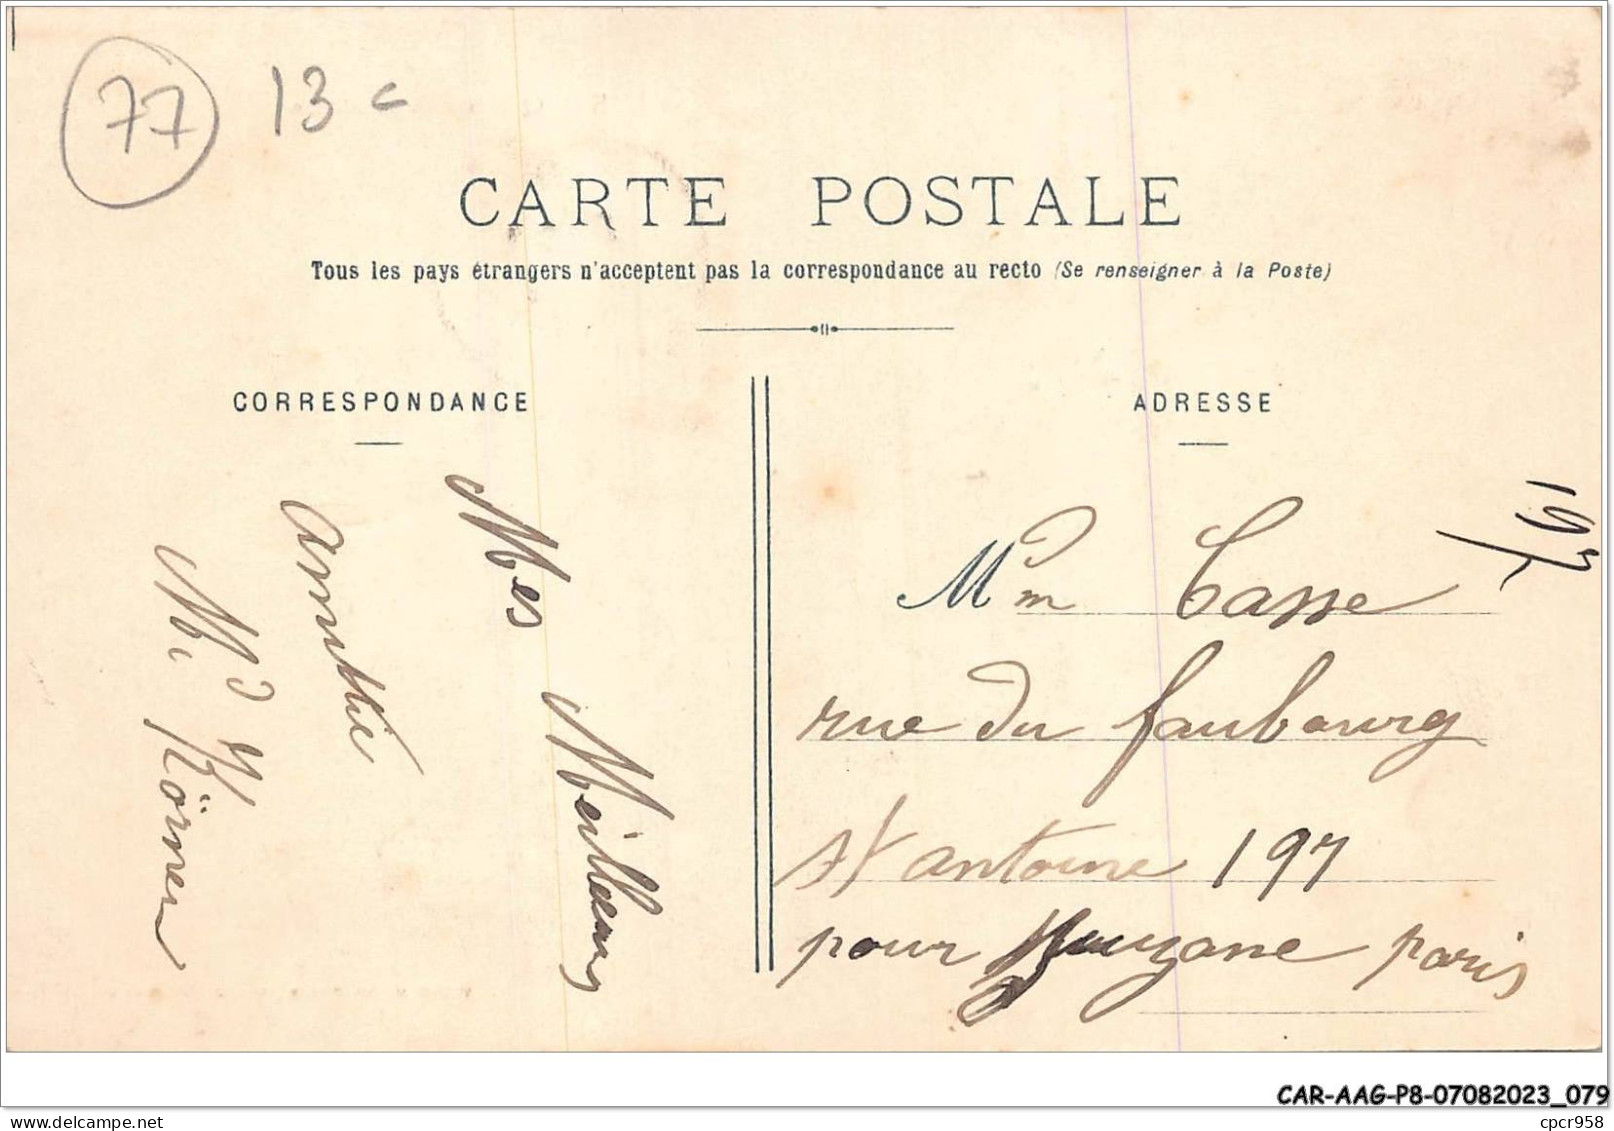 77 13 c
CARTE POSTALE
Tous les pays étrangers n'acceptent pas la correspondance au recto (Se renseigner à la Poste)
CORRESPONDANCE
Mes Meilleurs
amitié
Körner
ADRESSE
197
Mm Casse
rue du faubourg
st antoine 197
pour paris
CAR-AAG-P8-07082023_079
cpcr958